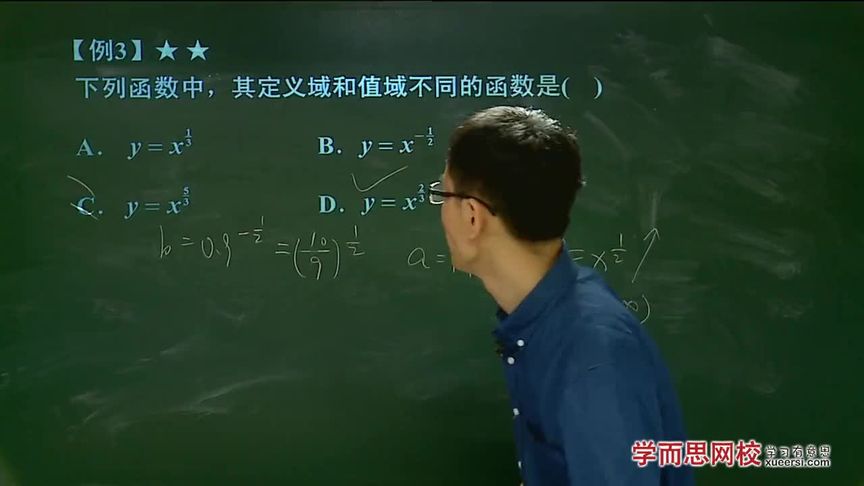 【例3】★★
下列函数中，其定义域和值域不同的函数是( )
A. y = x^{1/3} B. y = x^{-1/2}
C. y = x^{5/3} D. y = x^{2/3}
b = 0.9^{-1/2} = (10/9)^{1/2} a = = x^{1/2}
学而思网校 学习有意思
xueersi.com